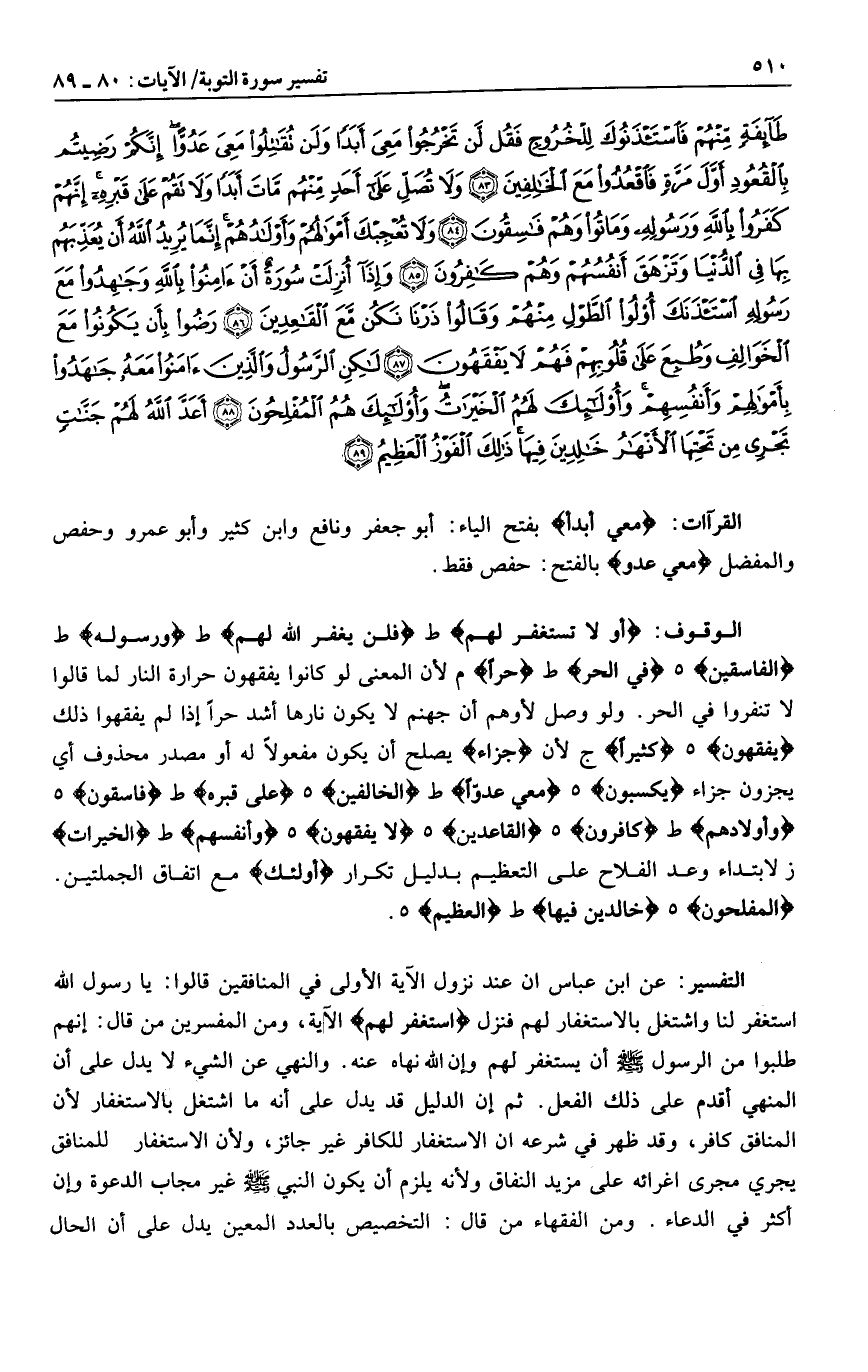 ٥١٠
تفسير سورة التوبة/ الآيات: ٨٠ ـ ٨٩
طَآئِفَةٍ مِّنْهُمْ فَٱسْتَـْٔذَنُوكَ لِلْخُرُوجِ فَقُل لَّن تَخْرُجُوا۟ مَعِىَ أَبَدًا وَلَن تُقَٰتِلُوا۟ مَعِىَ عَدُوًّا ۖ إِنَّكُمْ رَضِيتُم
بِٱلْقُعُودِ أَوَّلَ مَرَّةٍ فَٱقْعُدُوا۟ مَعَ ٱلْخَٰلِفِينَ ﴿٨٣﴾ وَلَا تُصَلِّ عَلَىٰٓ أَحَدٍ مِّنْهُم مَّاتَ أَبَدًا وَلَا تَقُمْ عَلَىٰ قَبْرِهِۦٓ ۖ إِنَّهُمْ
كَفَرُوا۟ بِٱللَّهِ وَرَسُولِهِۦ وَمَاتُوا۟ وَهُمْ فَٰسِقُونَ ﴿٨٤﴾ وَلَا تُعْجِبْكَ أَمْوَٰلُهُمْ وَأَوْلَٰدُهُمْ ۚ إِنَّمَا يُرِيدُ ٱللَّهُ أَن يُعَذِّبَهُم
بِهَا فِى ٱلدُّنْيَا وَتَزْهَقَ أَنفُسُهُمْ وَهُمْ كَٰفِرُونَ ﴿٨٥﴾ وَإِذَآ أُنزِلَتْ سُورَةٌ أَنْ ءَامِنُوا۟ بِٱللَّهِ وَجَٰهِدُوا۟ مَعَ
رَسُولِهِ ٱسْتَـْٔذَنَكَ أُو۟لُوا۟ ٱلطَّوْلِ مِنْهُمْ وَقَالُوا۟ ذَرْنَا نَكُن مَّعَ ٱلْقَٰعِدِينَ ﴿٨٦﴾ رَضُوا۟ بِأَن يَكُونُوا۟ مَعَ
ٱلْخَوَالِفِ وَطُبِعَ عَلَىٰ قُلُوبِهِمْ فَهُمْ لَا يَفْقَهُونَ ﴿٨٧﴾ لَٰكِنِ ٱلرَّسُولُ وَٱلَّذِينَ ءَامَنُوا۟ مَعَهُۥ جَٰهَدُوا۟
بِأَمْوَٰلِهِمْ وَأَنفُسِهِمْ ۚ وَأُو۟لَٰٓئِكَ لَهُمُ ٱلْخَيْرَٰتُ ۖ وَأُو۟لَٰٓئِكَ هُمُ ٱلْمُفْلِحُونَ ﴿٨٨﴾ أَعَدَّ ٱللَّهُ لَهُمْ جَنَّٰتٍ
تَجْرِى مِن تَحْتِهَا ٱلْأَنْهَٰرُ خَٰلِدِينَ فِيهَا ۚ ذَٰلِكَ ٱلْفَوْزُ ٱلْعَظِيمُ ﴿٨٩﴾
القرآات: ﴿معي أبدأ﴾ بفتح الياء: أبو جعفر ونافع وابن كثير وأبو عمرو وحفص
والمفضل ﴿معي عدو﴾ بالفتح: حفص فقط.
الوقوف: ﴿أو لا تستغفر لهم﴾ ط ﴿فلن يغفر الله لهم﴾ ط ﴿ورسوله﴾ ط
﴿الفاسقين﴾ ٥ ﴿في الحر﴾ ط ﴿حراً﴾ م لأن المعنى لو كانوا يفقهون حرارة النار لما قالوا
لا تنفروا في الحر. ولو وصل لأوهم أن جهنم لا يكون نارها أشد حراً إذا لم يفقهوا ذلك
﴿يفقهون﴾ ٥ ﴿كثيراً﴾ ج لأن ﴿جزاء﴾ يصلح أن يكون مفعولاً له أو مصدر محذوف أي
يجزون جزاء ﴿يكسبون﴾ ٥ ﴿معي عدوّاً﴾ ط ﴿الخالفين﴾ ٥ ﴿على قبره﴾ ط ﴿فاسقون﴾ ٥
﴿وأولادهم﴾ ط ﴿كافرون﴾ ٥ ﴿القاعدين﴾ ٥ ﴿لا يفقهون﴾ ٥ ﴿وأنفسهم﴾ ط ﴿الخيرات﴾
ز لابتداء وعد الفلاح على التعظيم بدليل تكرار ﴿أولئك﴾ مع اتفاق الجملتين.
﴿المفلحون﴾ ٥ ﴿خالدين فيها﴾ ط ﴿العظيم﴾ ٥.
التفسير: عن ابن عباس ان عند نزول الآية الأولى في المنافقين قالوا: يا رسول الله
استغفر لنا واشتغل بالاستغفار لهم فنزل ﴿استغفر لهم﴾ الآية، ومن المفسرين من قال: إنهم
طلبوا من الرسول ﷺ أن يستغفر لهم وإن الله نهاه عنه. والنهي عن الشيء لا يدل على أن
المنهي أقدم على ذلك الفعل. ثم إن الدليل قد يدل على أنه ما اشتغل بالاستغفار لأن
المنافق كافر، وقد ظهر في شرعه ان الاستغفار للكافر غير جائز، ولأن الاستغفار للمنافق
يجري مجرى اغرائه على مزيد النفاق ولأنه يلزم أن يكون النبي ﷺ غير مجاب الدعوة وإن
أكثر في الدعاء . ومن الفقهاء من قال : التخصيص بالعدد المعين يدل على أن الحال